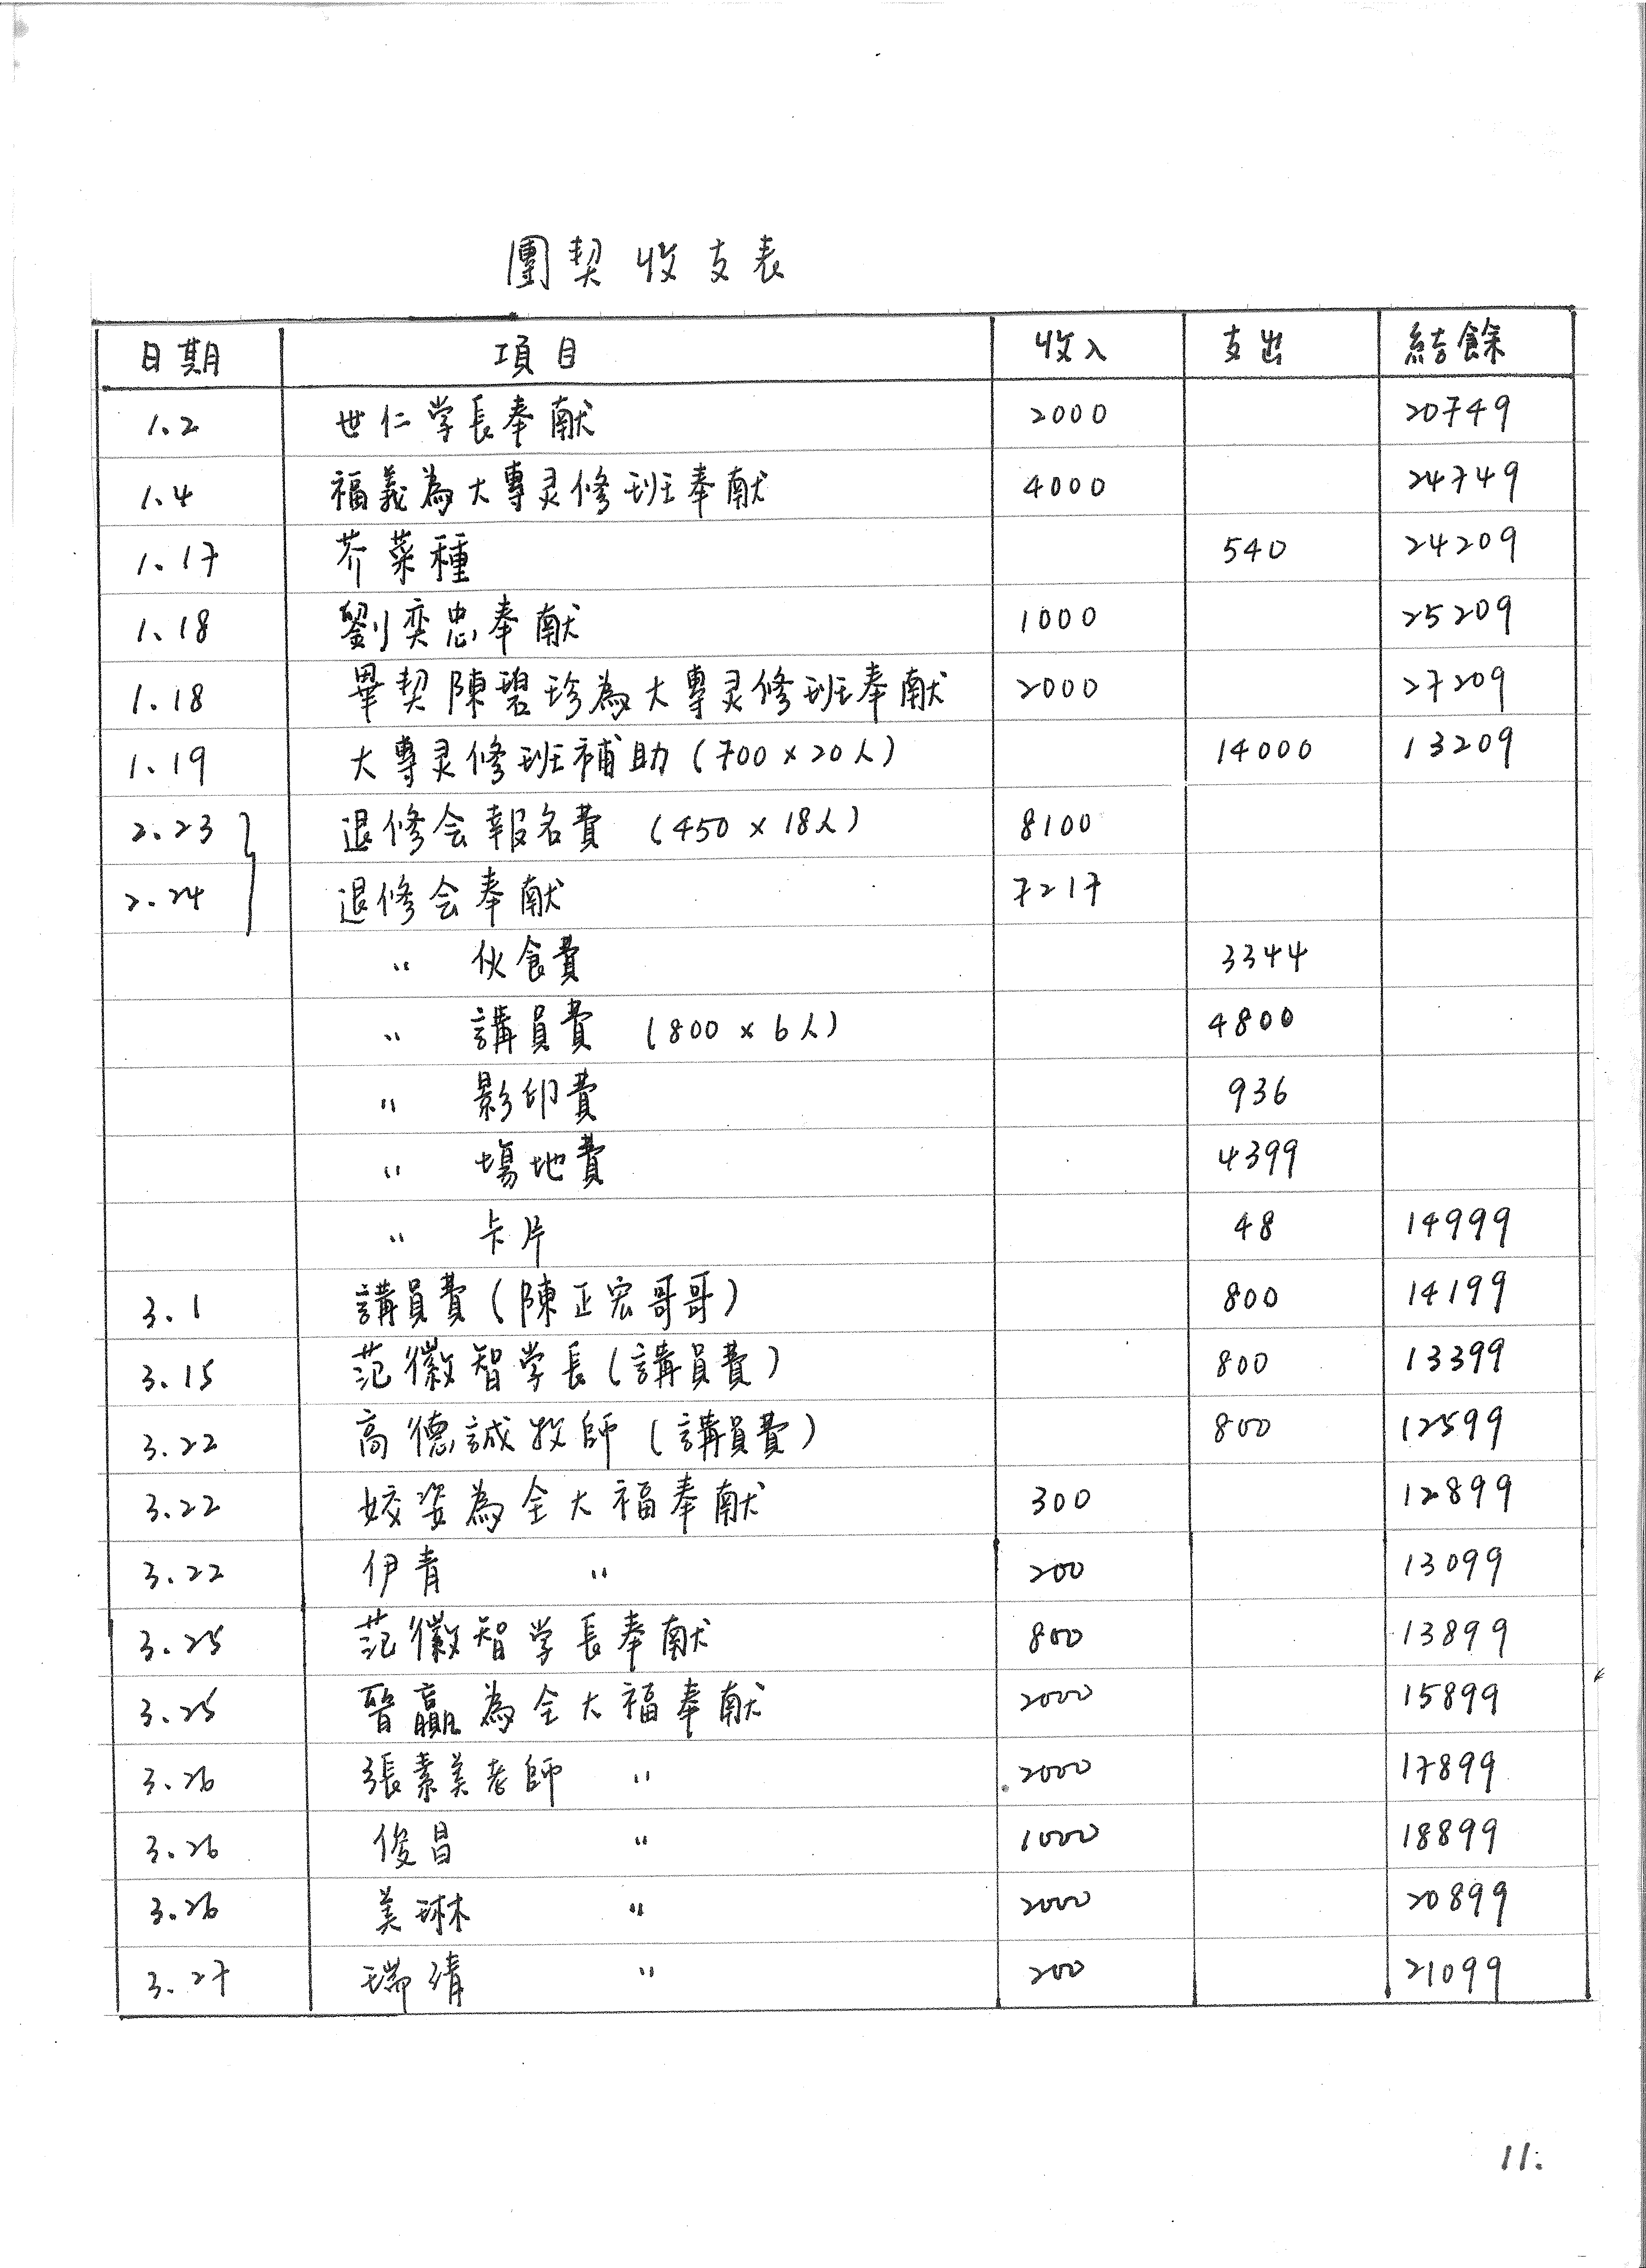 團契收支表
日期 項目 收入 支出 結餘
1.2 世仁学長奉献 2000 20749
1.4 福義為大專灵修班奉献 4000 24749
1.17 芥菜種 540 24209
1.18 劉奕忠奉献 1000 25209
1.18 畢契陳碧珍為大專灵修班奉献 2000 27209
1.19 大專灵修班補助(700×20人) 14000 13209
2.23 退修会報名費 (450×18人) 8100
2.24 退修会奉献 7217
" 伙食費 3344
" 講員費 (800×6人) 4800
" 影印費 936
" 場地費 4399
" 卡片 48 14999
3.1 講員費(陳正宏哥哥) 800 14199
3.15 范徽智学長(講員費) 800 13399
3.22 高德誠牧師(講員費) 800 12599
3.22 姣姿為全大福奉献 300 12899
3.22 伊青 " 200 13099
3.25 范徽智学長奉献 800 13899
3.25 晉贏為全大福奉献 2000 15899
3.26 張素美老師 " 2000 17899
3.26 俊昌 " 1000 18899
3.26 美琳 " 2000 20899
3.27 瑞靖 " 200 21099
11.